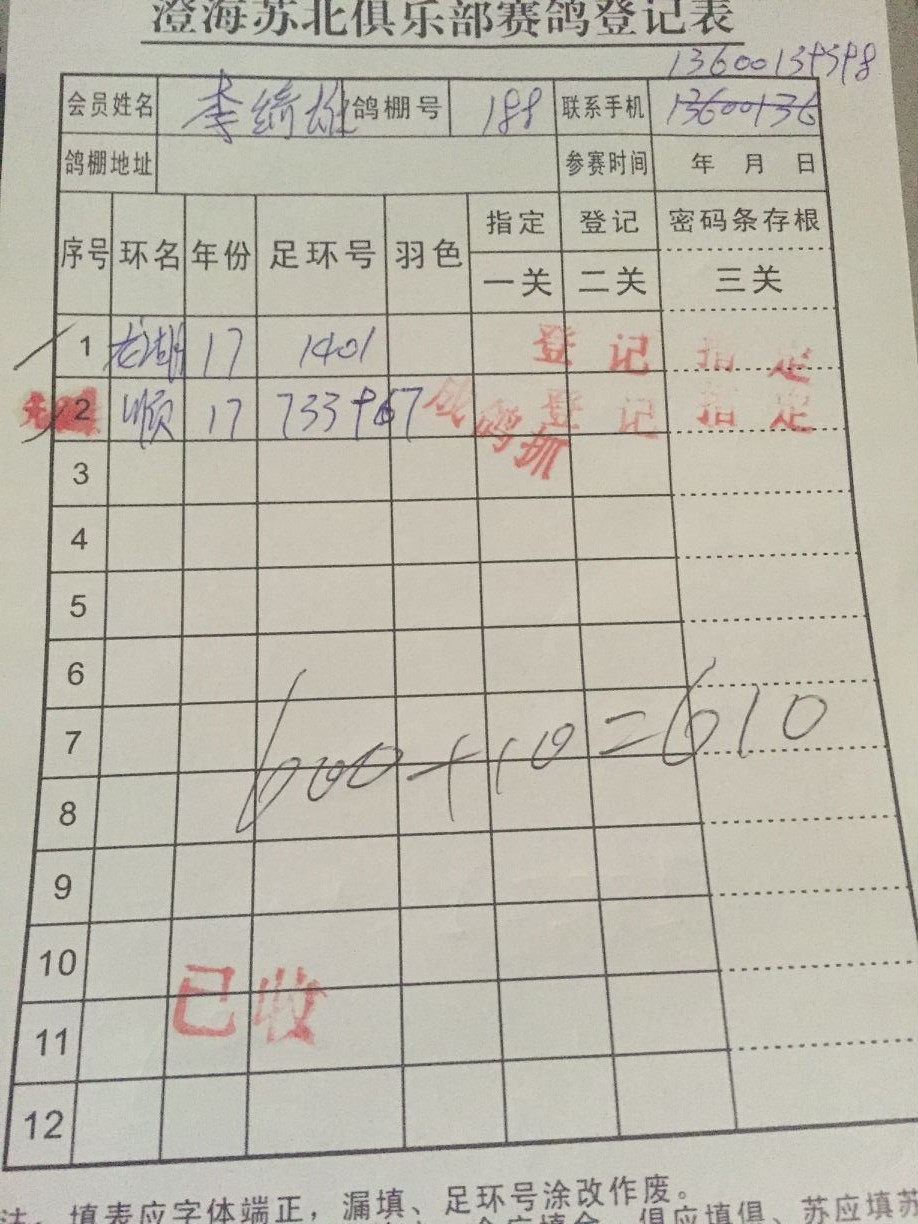 澄海苏北俱乐部赛鸽登记表
会员姓名 李绮雄 鸽棚号 188 联系手机 13600136
鸽棚地址 参赛时间 年 月 日
序号 环名 年份 足环号 羽色 指定 登记 密码条存根
一关 二关 三关
1 17 1401 登记 指定
2 顺 17 733967 成鸽抓 登记 指定
3
4
5
6
7
600+10=610
8
9
10
已收
11
12
注：填表应字体端正，漏填、足环号涂改作废。
应填俱、苏应填苏